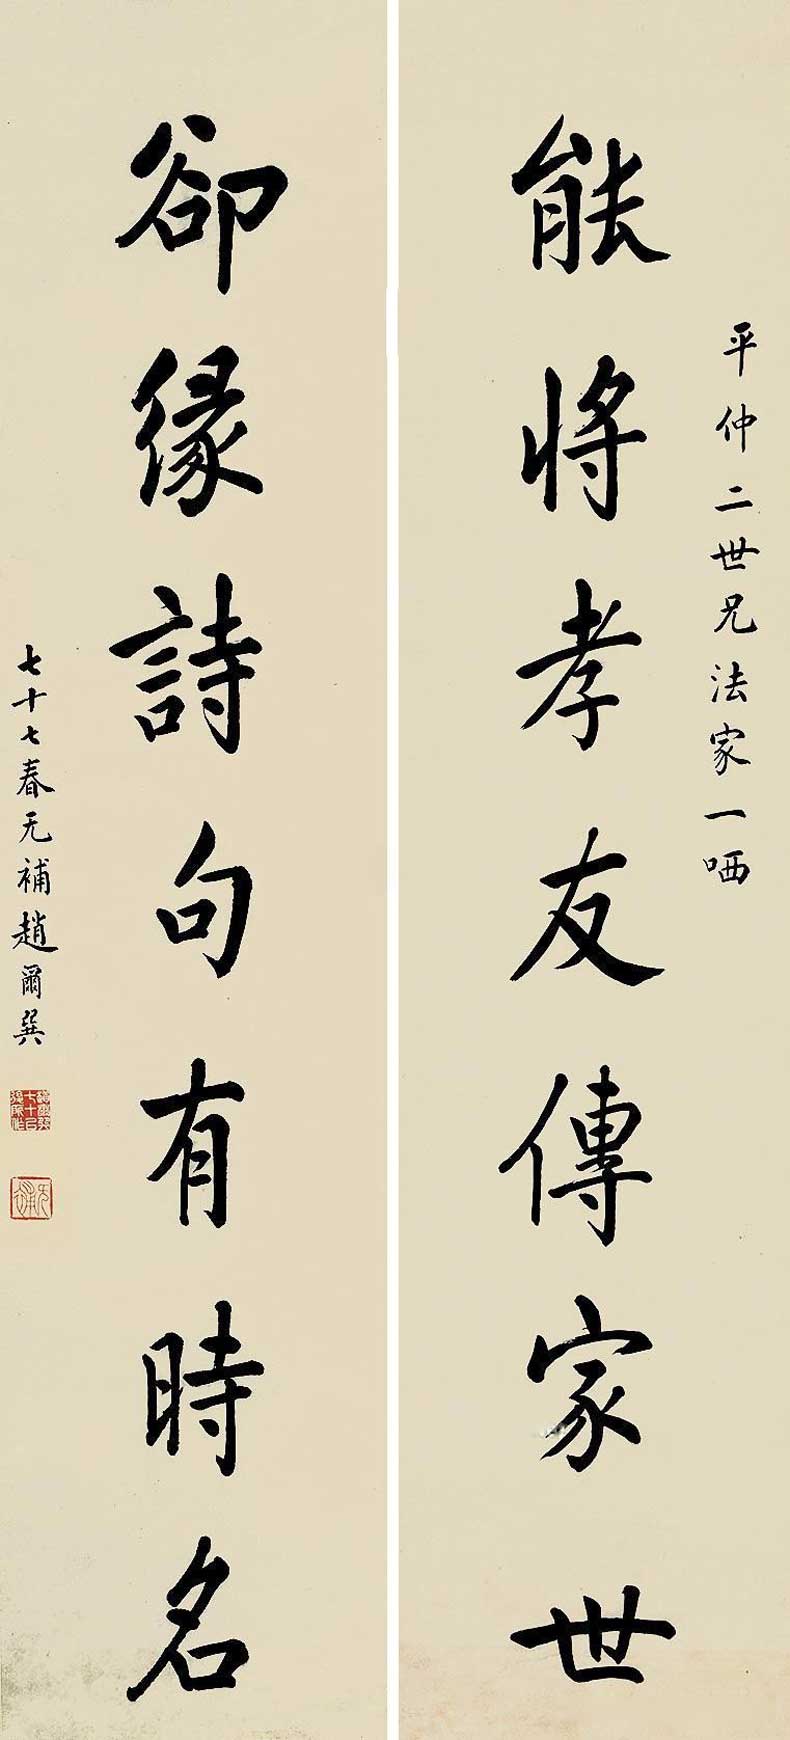 平仲二世兄法家一哂
能將孝友傳家世
卻緣詩句有時名
七十七春无補趙爾巽
无補